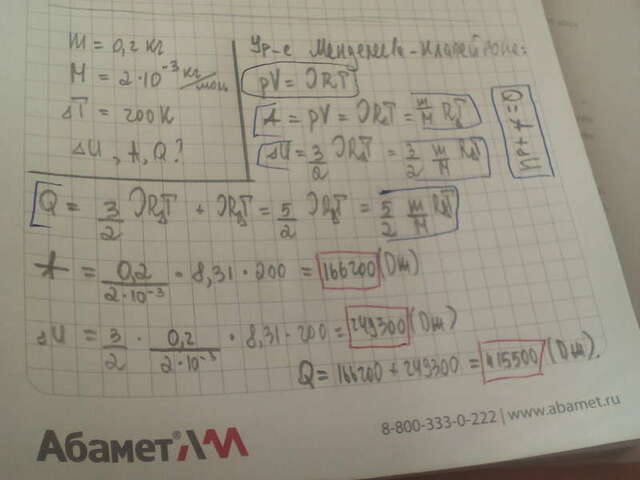 m = 0,2 кг
M = 2·10⁻³ кг/моль
ΔT = 200K
ΔU, A, Q?
Ур-е Менделеева-Клапейрона:
pV = νRT
A = pV = νRΔT = m/M RΔT
ΔU = 3/2 νRΔT = 3/2 m/M RΔT
Q = A + ΔU
Q = 3/2 νRΔT + νRΔT = 5/2 νRΔT = 5/2 m/M RΔT
A = 0,2/2·10⁻³ · 8,31 · 200 = 166200 (Дж)
ΔU = 3/2 · 0,2/2·10⁻³ · 8,31 · 200 = 249300 (Дж)
Q = 166200 + 249300 = 415500 (Дж).
Абамет®
8-800-333-0-222 | www.abamet.ru